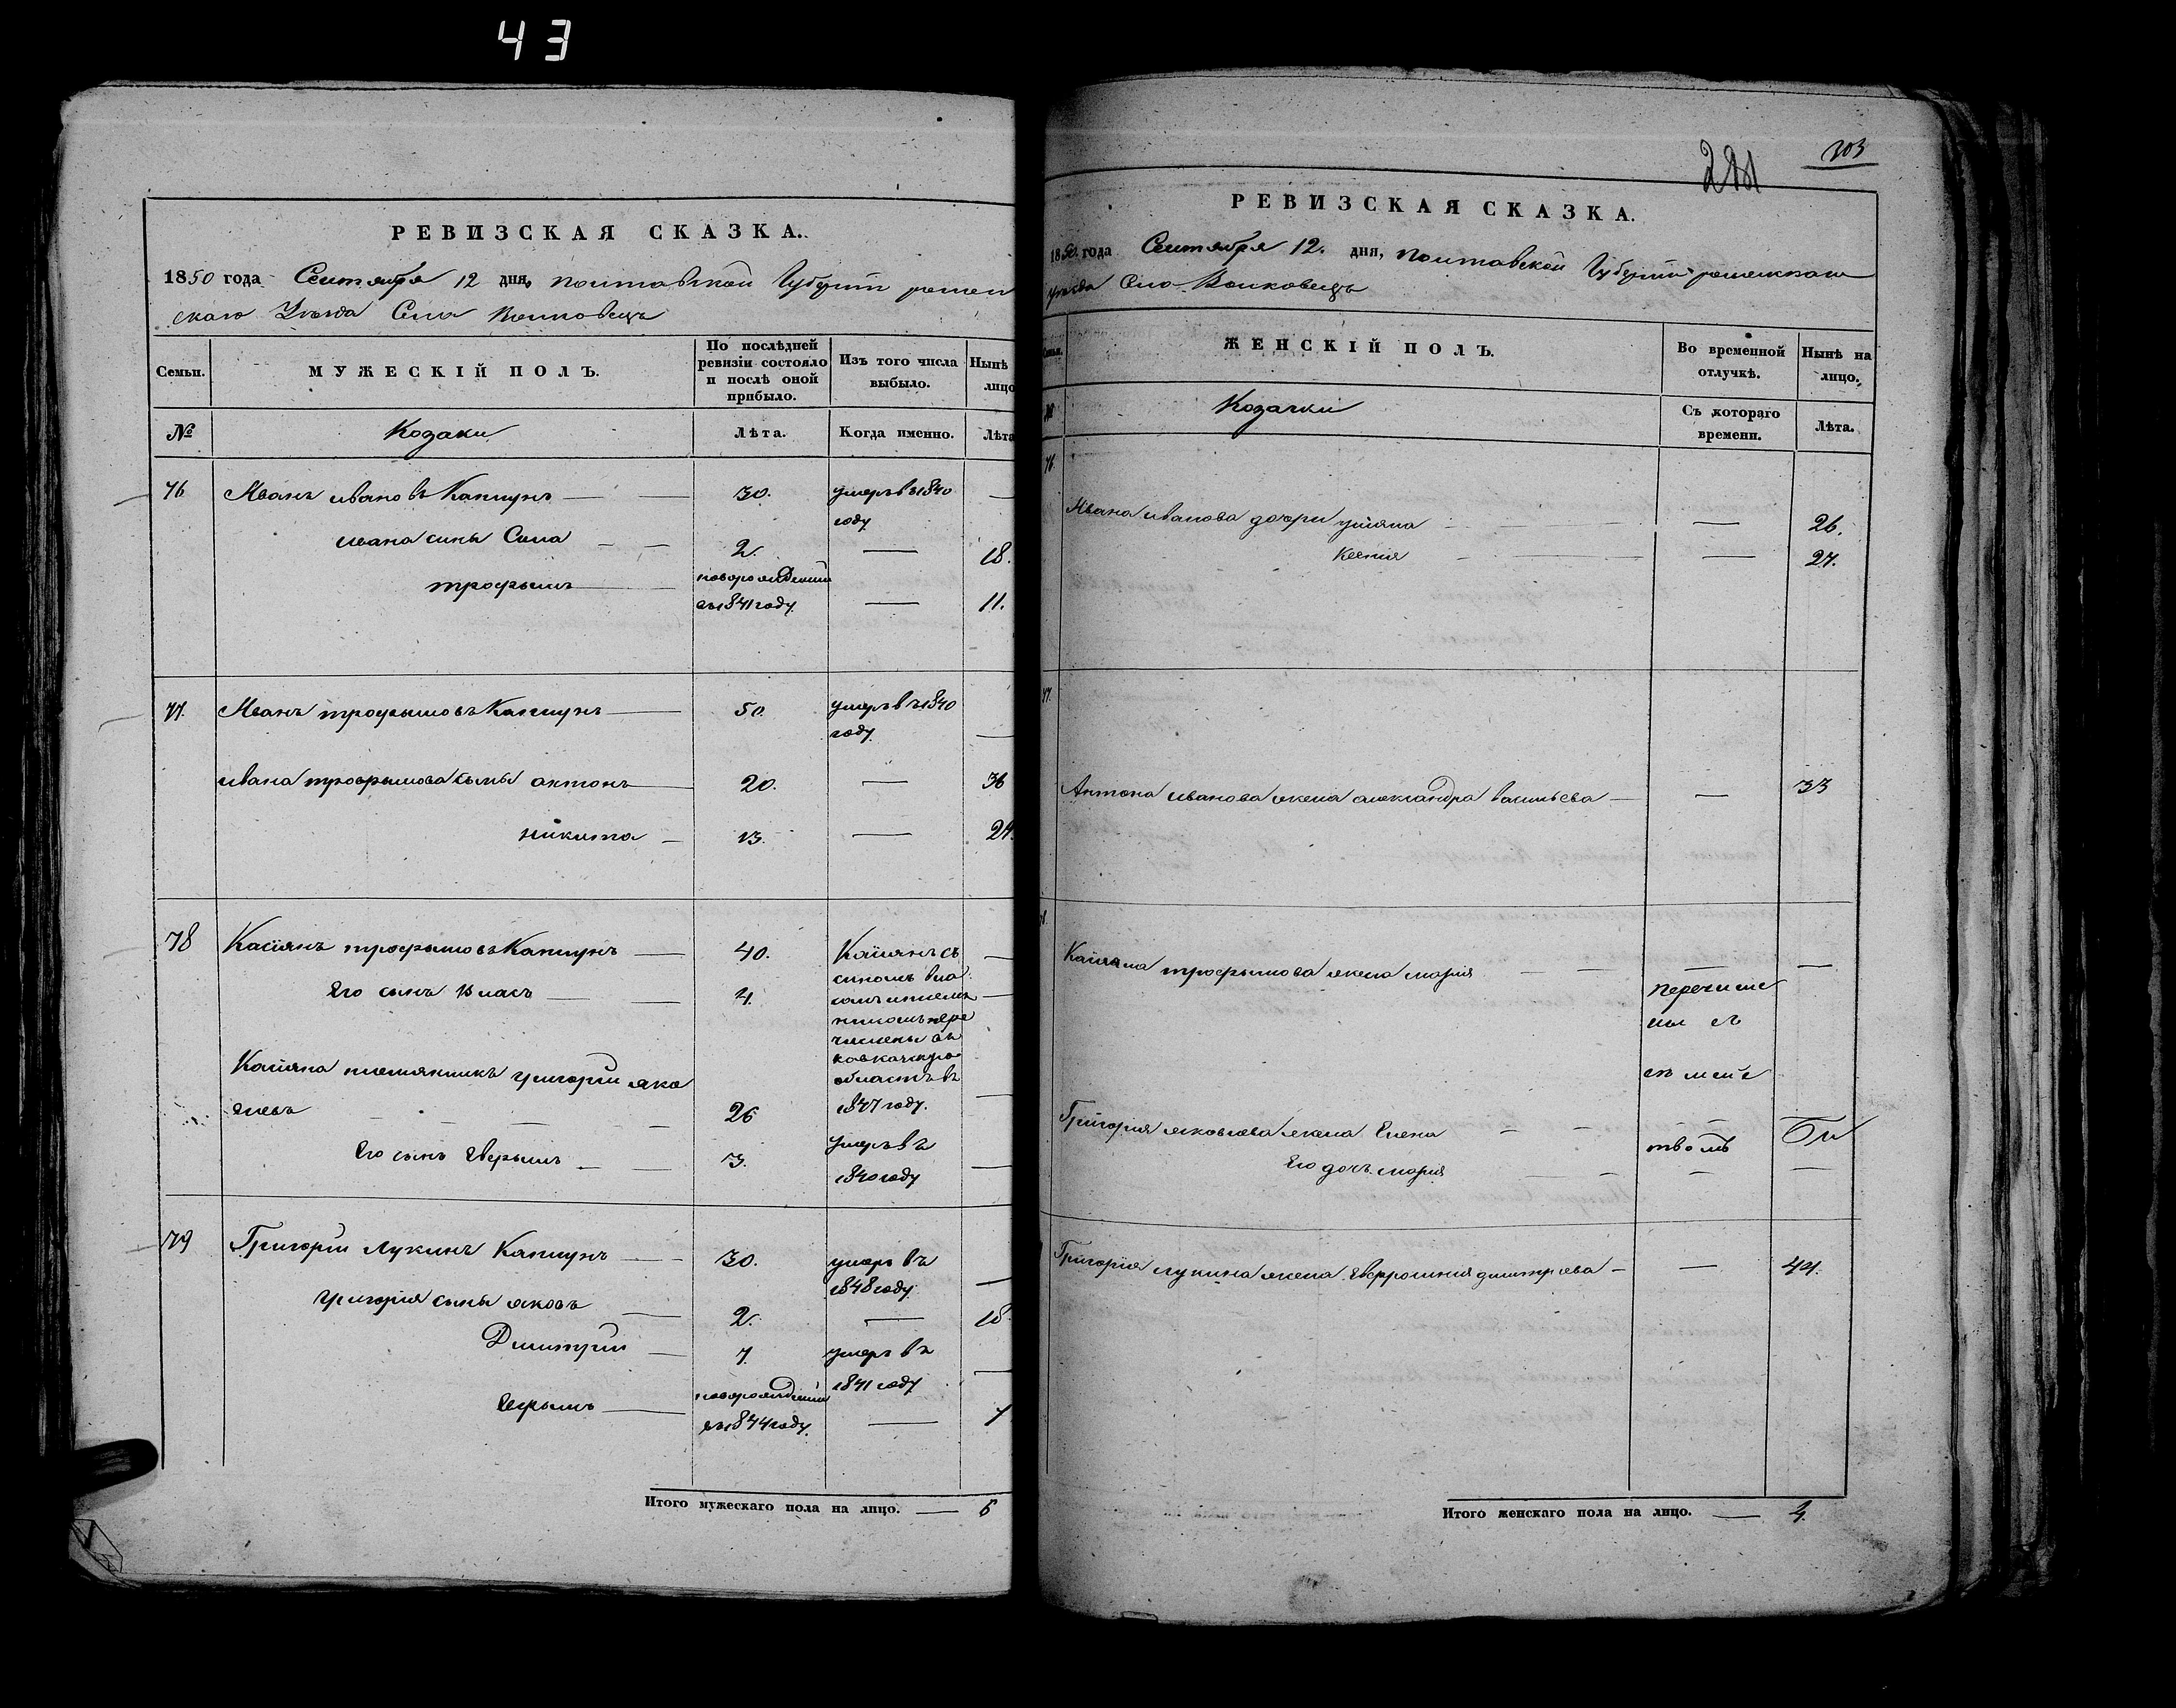 43
РЕВИЗСКАЯ СКАЗКА.
1850 года Сентября 12 дня, Полтавской Губерніи ромен
скаго Уезда Села Волковецъ
Семьи.
МУЖЕСКІЙ ПОЛЪ.
По послѣдней ревизіи состояло и послѣ оной прибыло.
Изъ того числа выбыло.
Нынѣ лицо
№
Козаки
Лѣта.
Когда именно.
Лѣта
76 Иванъ ивановъ Капшунъ — 30. умеръ въ 1840 году —
ивана сины Сила — 2. — 18.
трофымъ — новорожденный въ 1841 году — 11.
77. Иванъ трофымовъ Капшунъ — 50. умеръ въ 1840 году —
ивана трофымова сыны антонъ — 20. — 36
никита — 13. —
78 Касіянъ трофымовъ Капшунъ — 40. Касіянъ съ —
Его сынъ Власъ — 4. —
сыномъ
числены въ
область въ
1847 году.
Касіяна племянникъ григорій яко
влевъ — 26 —
Его сынъ Ефрымъ — 3. умеръ въ 1840 году —
79 Григорій лукинъ Капшунъ — 30. умеръ въ 1848 году —
григорія сыны яковъ — 2. — 18.
Димитрій — 7. умеръ въ 1841 году —
Ефрымъ — новорожденный въ 1844 году — 7
Итого мужескаго пола на лицо. — 6
303
РЕВИЗСКАЯ СКАЗКА.
1850 года Сентября 12. дня, Полтавской Губерніи роменскаго
уезда Села Волковецъ
Семьи.
ЖЕНСКІЙ ПОЛЪ.
Во временной отлучкѣ.
Нынѣ на лицо.
№
Козачки
Съ котораго времени.
Лѣта.
76.
Ивана иванова дочери уліяна — — 26.
Ксенія — —
77.
Антона иванова жена александра васильева — — 33
78.
Касіяна трофымова жена марія — — —
перечисле
ны съ
семей
ствомъ
Григорія яковлева жена Елена — —
Его дочь марія — — —
Григорія лукина жена Евфросинія димитріева — — 44.
Итого женскаго пола на лицо. — 4.